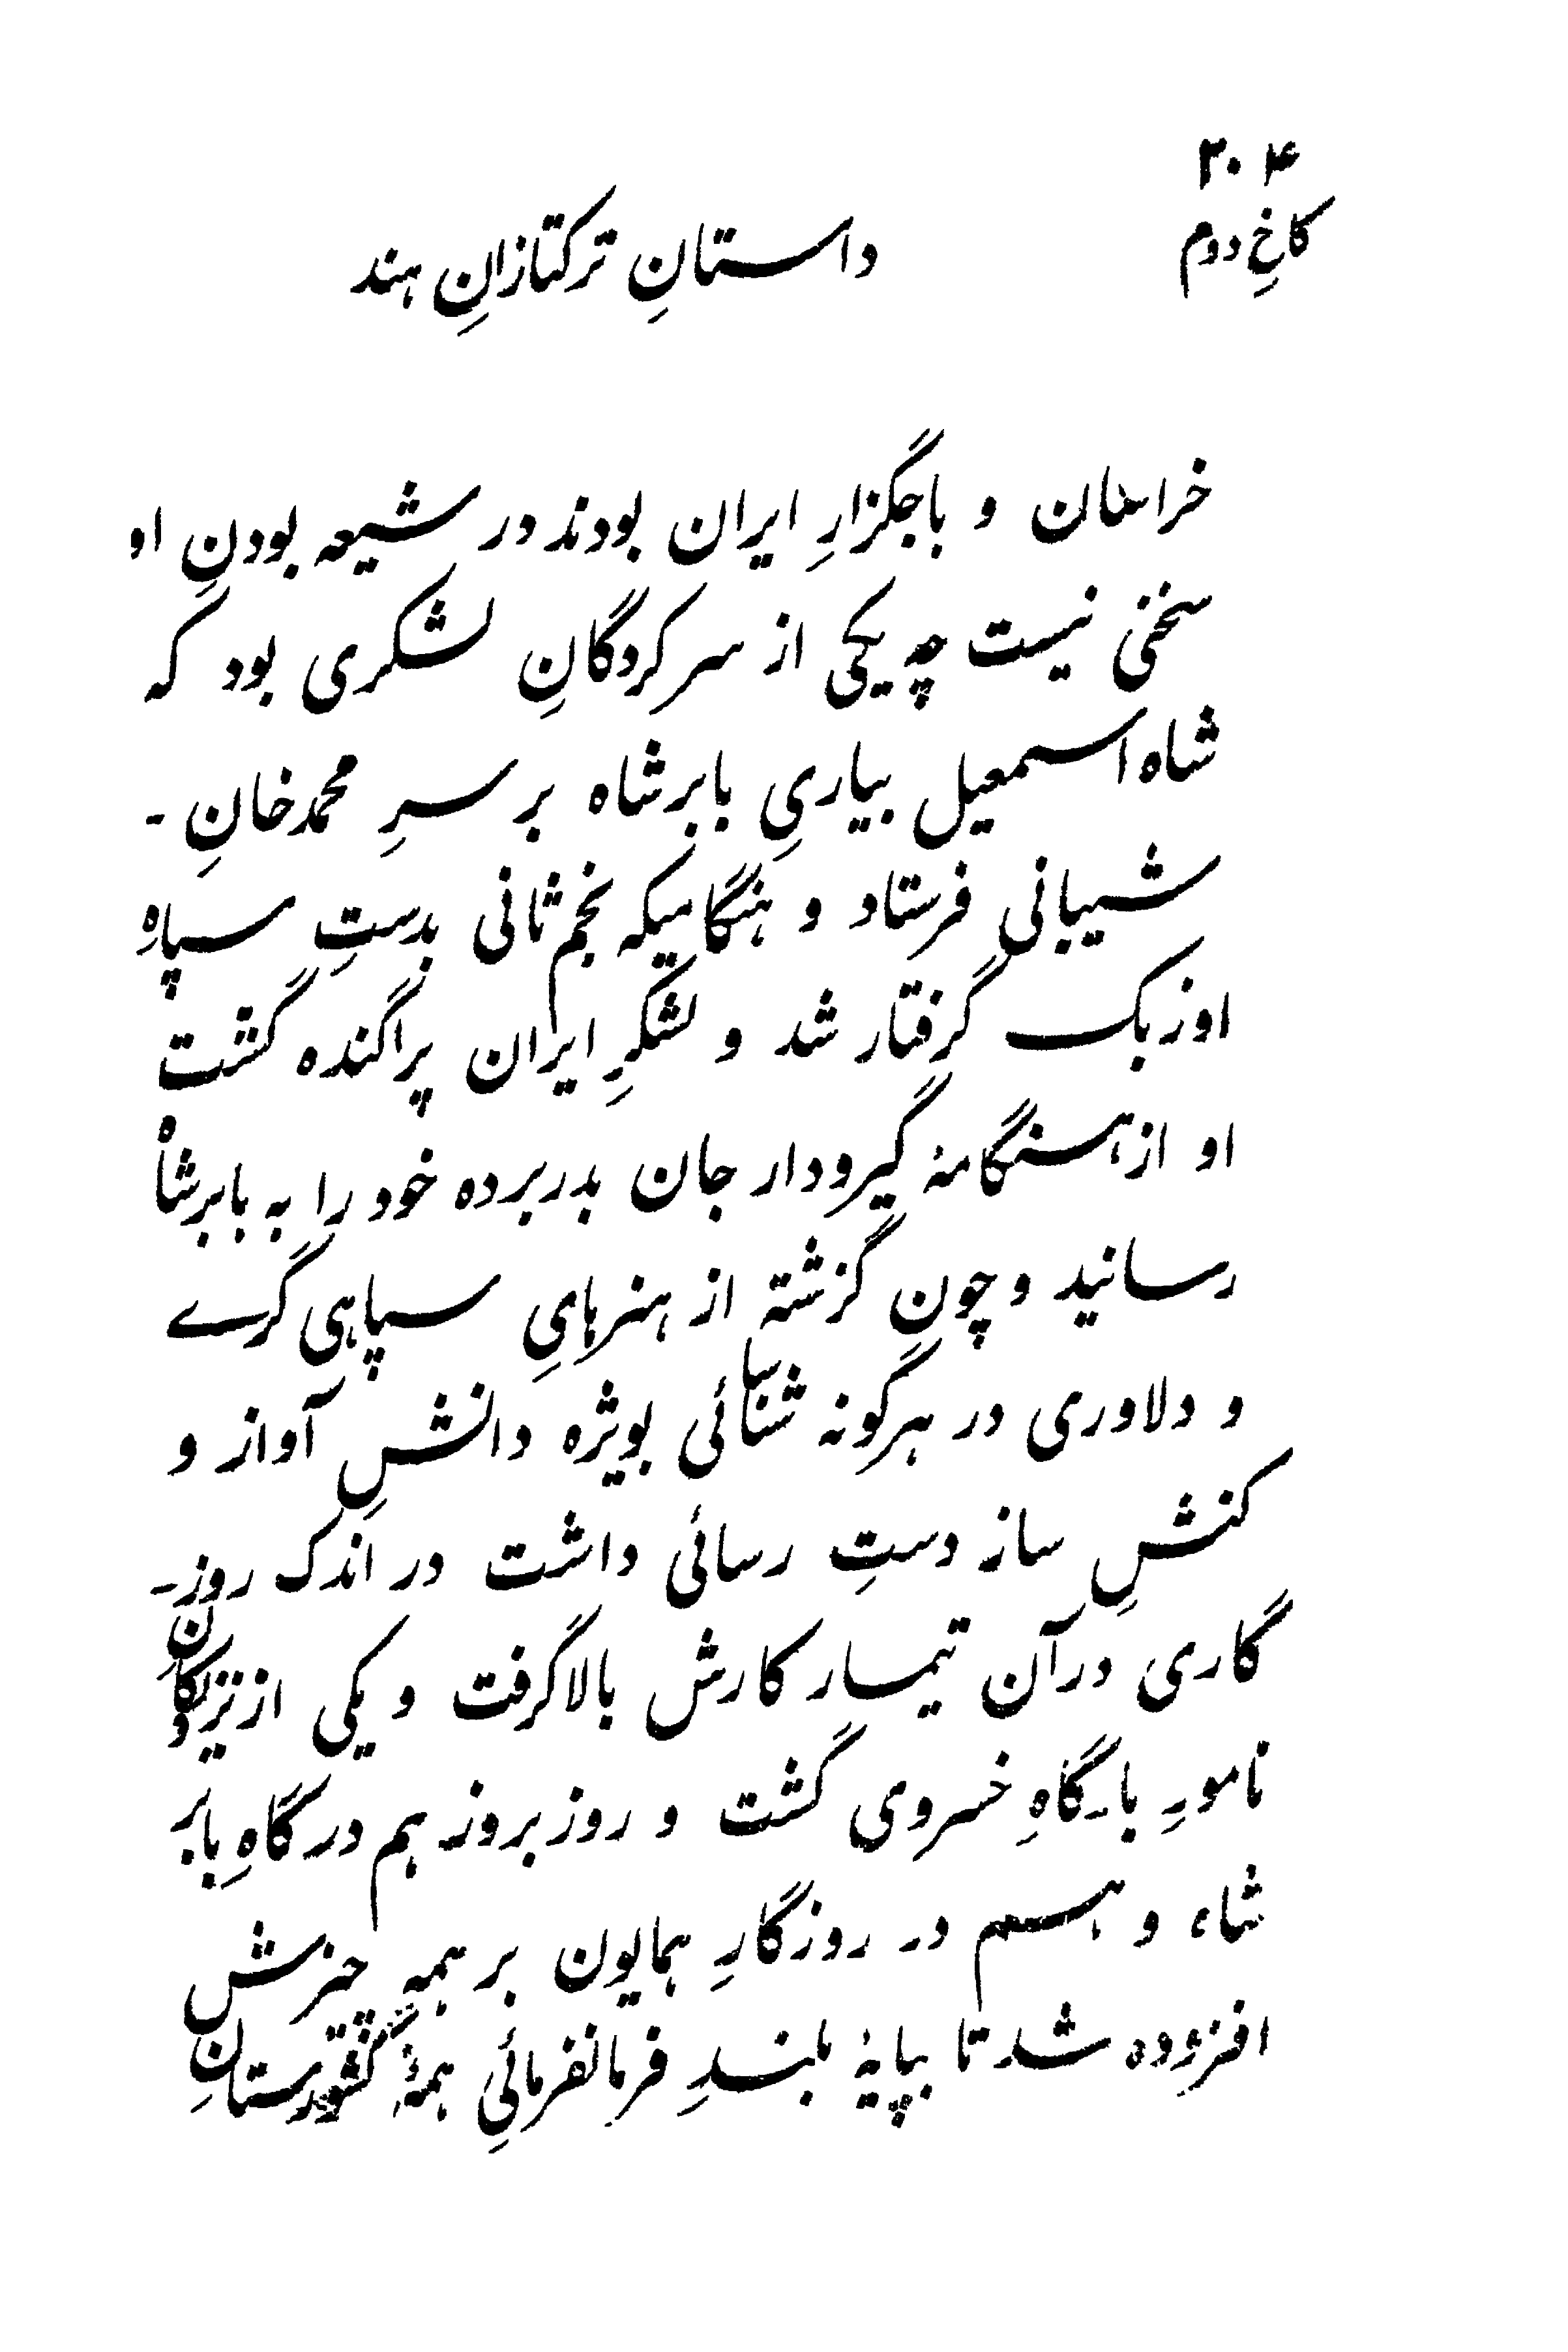 ۳۰۴
کاخِ دوم
داستانِ ترکتازانِ هند
خراسان و باجگزارِ ایران بودند در شیعه بودنِ او
سخنی نیست چه یکی از سرکردگانِ لشکری بود که
شاه اسمعیل بیاریِ بابرشاه بر سرِ محمدخانِ -
شیبانی فرستاد و هنگامیکه نجم ثانی بدستِ سپاهِ
اوزبک گرفتار شد و لشکرِ ایران پراگنده گشت
او از هنگامهٔ گیرودار جان بدر برده خود را به بابرشاه
رسانید و چون گزشته از هنرهایِ سپاهی گرے
و دلاوری در هرگونه شناسائی بویژه دانشِ آواز و
کنشِ ساز دستِ رسائی داشت در اندک روز-
گاری در آن تیمسار کارش بالا گرفت و یکی از نزدیکانِ
نامورِ بارگاهِ خسروی گشت و روز بروز هم در گاهِ بابر
شاه و هم در روزگارِ همایون بر همه چیزش
افزوده شد تا بپایهٔ بلندِ فرمانفرمائیِ همهٔ کشورستانِ